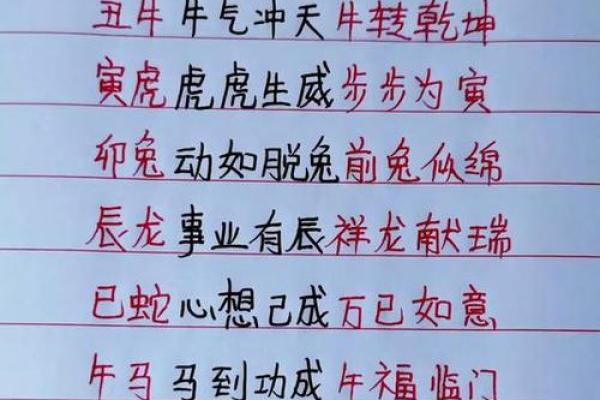 丑牛牛气冲天牛转乾坤
寅虎虎虎生威步步为寅
卯兔动如脱兔前兔似绵
辰龙事业有辰祥龙献瑞
已蛇心想己成万已如意
午马马到功成午福临门